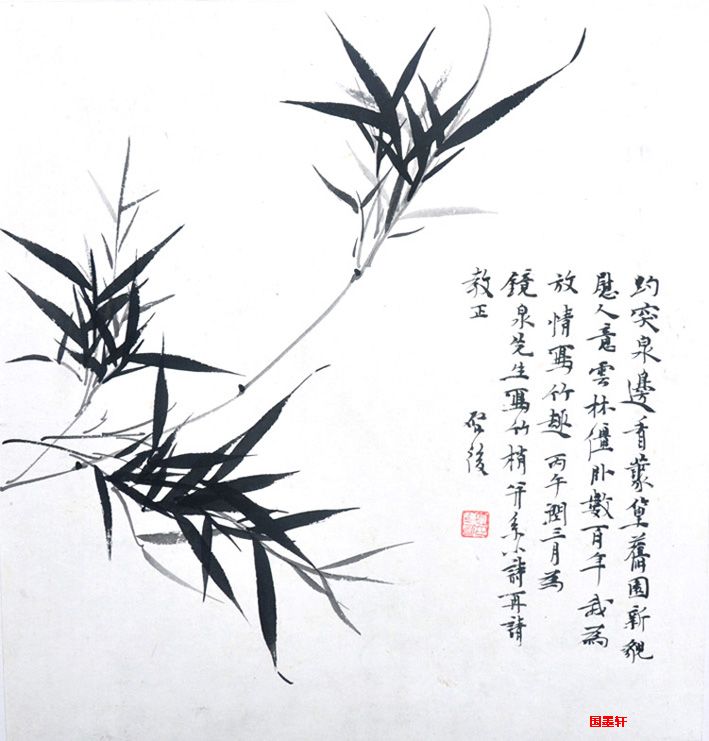 趵突泉邊看叢篁舊園新貌
慰人意雲林僵卧數百年我為
放情寫竹趣丙午閏三月為
鏡泉先生寫竹梢並系小詩再請
教正
啓後
国墨轩